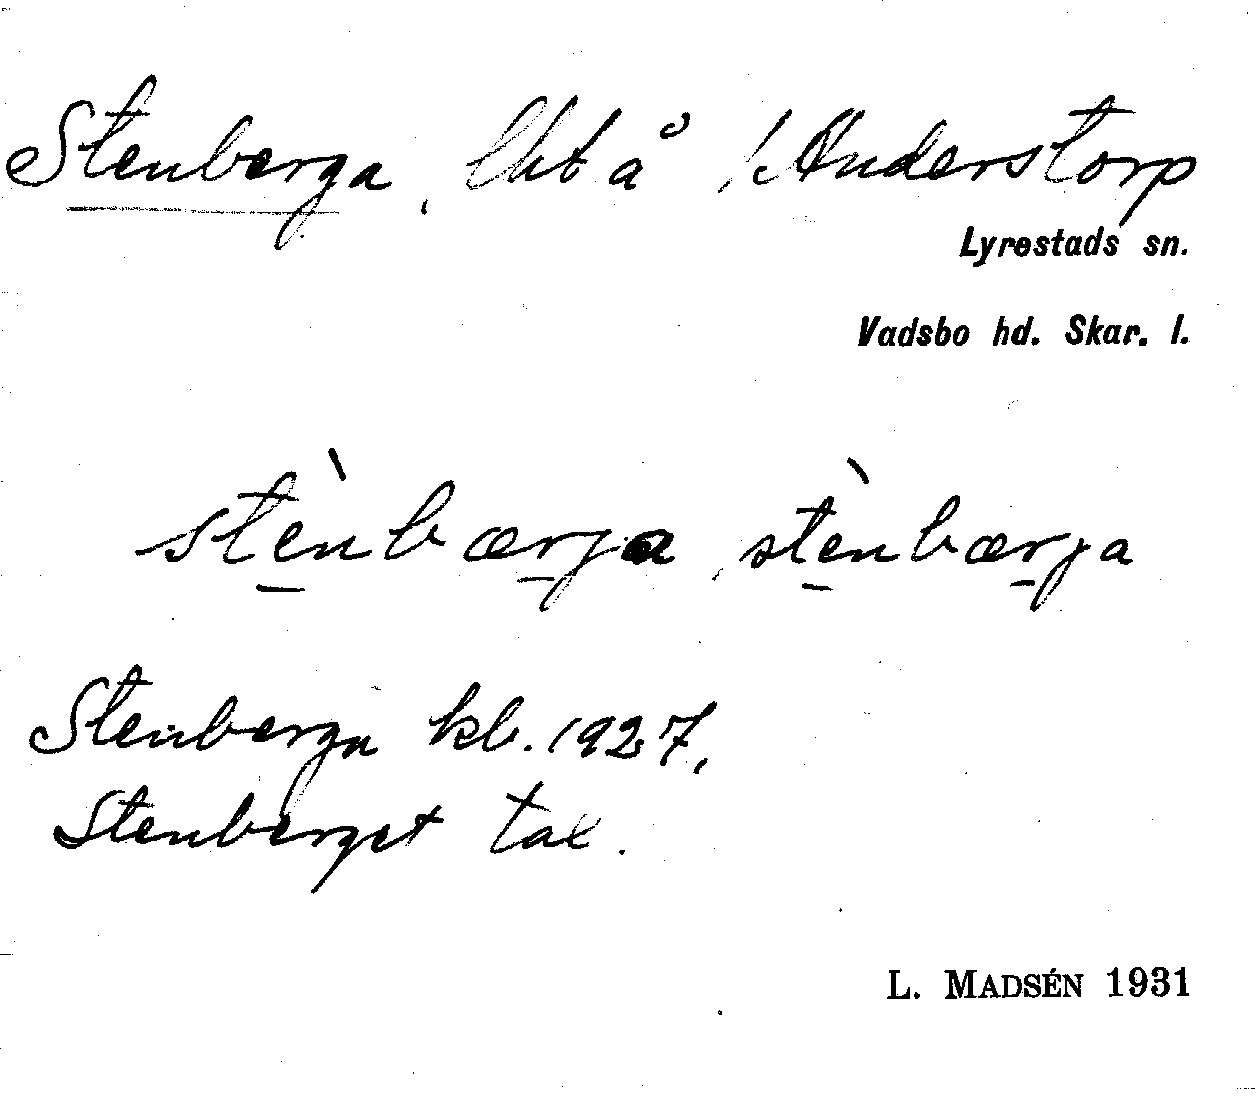 Stenberga, lht å /Anderstorp
Lyrestads sn.
Vadsbo hd. Skar. l.
stènbærja, stènbærja
Stenberga kb. 1927,
Stenberget tax.
L. MADSÉN 1931